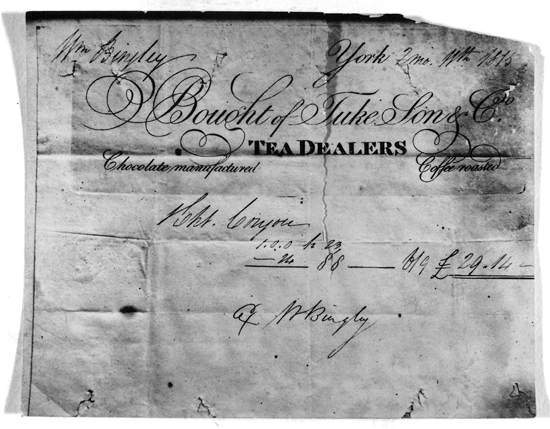 Wm Bingley York 2 mo. 11th 1815
Bought of Tuke Son & Co
TEA DEALERS
Chocolate manufactured Coffee roasted
1 Cht. Congou
1.0.0
24 88 — 6/9 £29.14 –
W Bingley